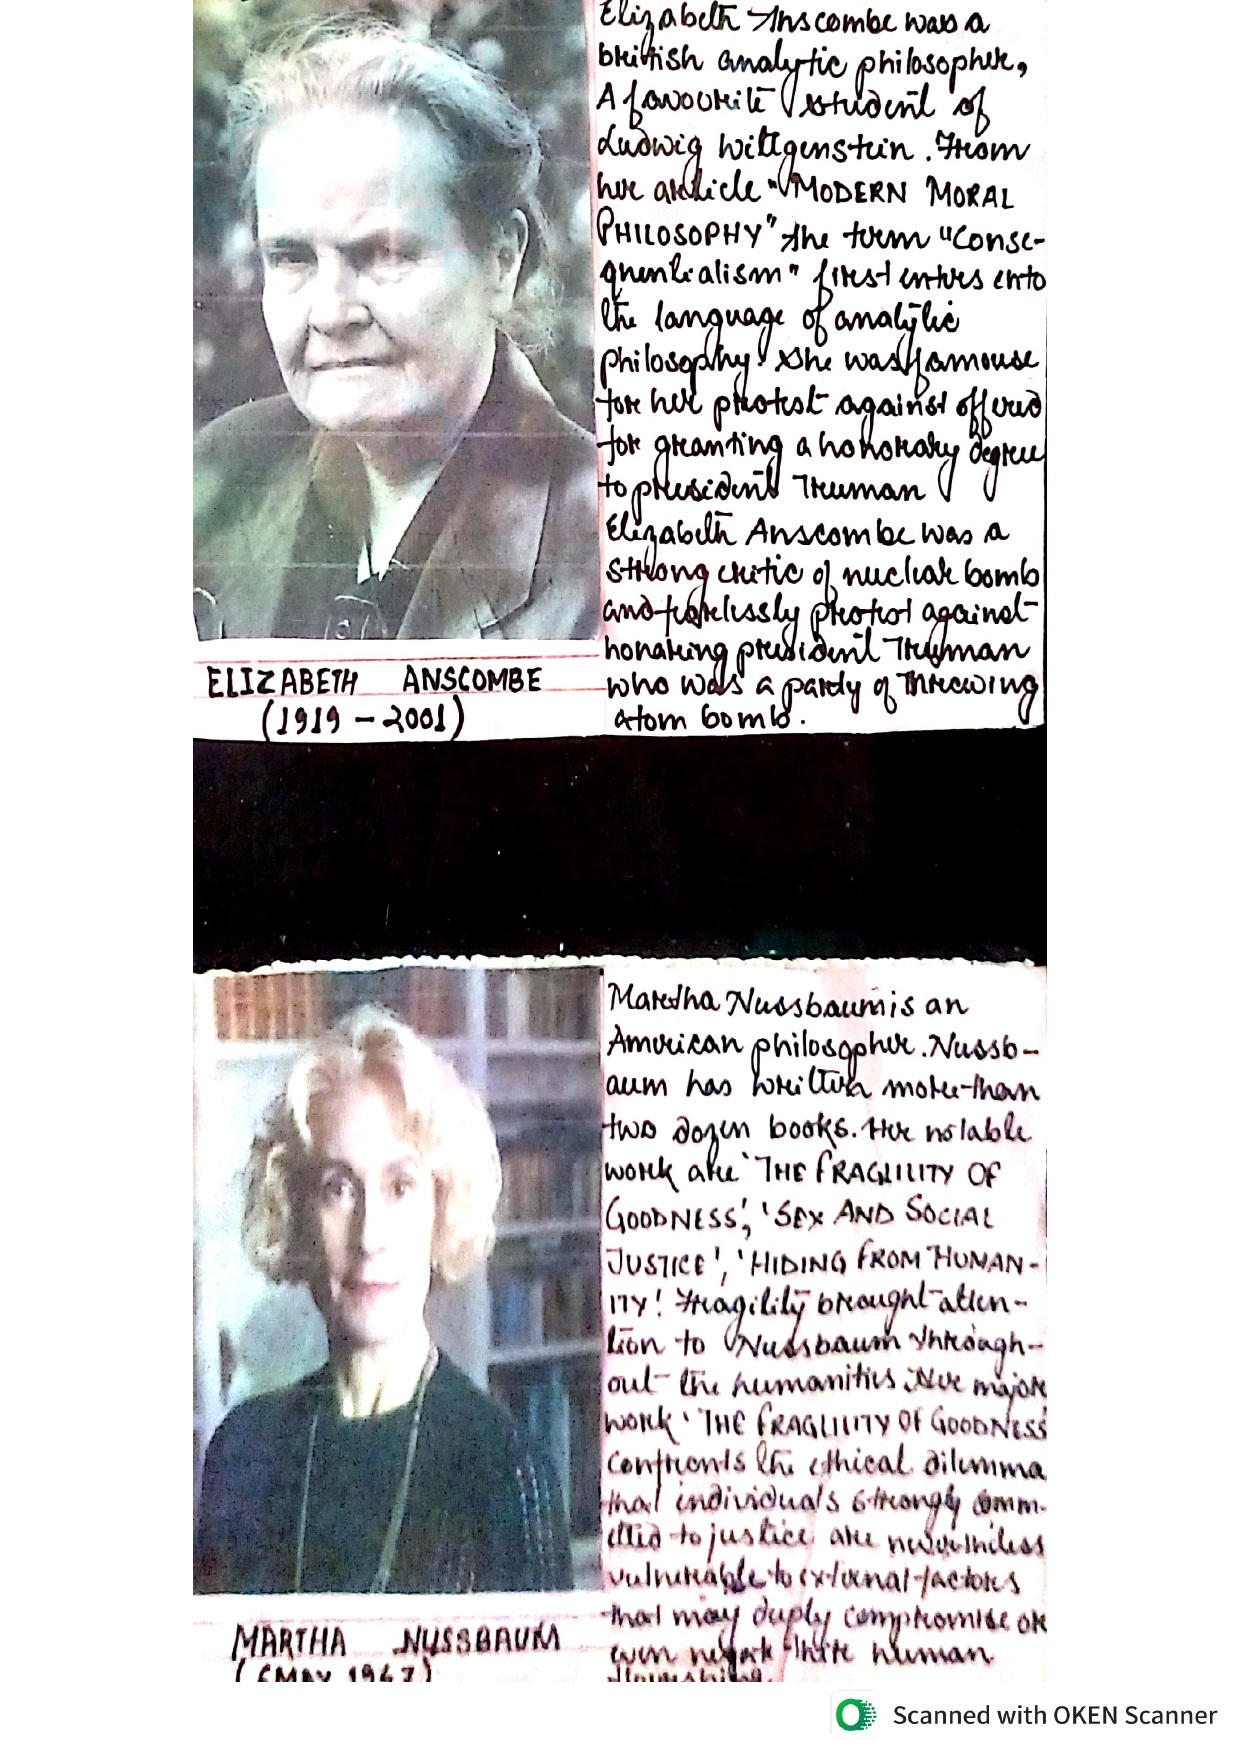 Elizabeth Anscombe was a
british analytic philosopher,
A favourite student of
Ludwig Wittgenstein. From
her article "MODERN MORAL
PHILOSOPHY" the term "Conse-
quentialism" first enters into
the language of analytic
philosophy. She was famouse
for her protest against offered
for granting a honorary degree
to president Truman
Elizabeth Anscombe was a
strong critic of nuclear bomb
and fearlessly protest against
honaring president Truman
who was a party of threwing
atom bomb.
ELIZABETH ANSCOMBE
(1919-2001)
Martha Nussbaum is an
American philosopher. Nussb-
aum has written more than
two dozen books. Her notable
work are 'THE FRAGILITY OF
GOODNESS', 'SEX AND SOCIAL
JUSTICE', 'HIDING FROM HUMAN-
ITY! Fragility brought atten-
tion to Nussbaum through-
out the humanities. Her major
work 'THE FRAGLILITY OF GOODNESS'
confronts the ethical dilemma
that individuals strongly comm-
itted to justice are nevertheless
vulnerable to external factors
that may deeply compromise or
even negate their human
flourishing.
MARTHA NUSSBAUM
(6 MAY 1947)
Scanned with OKEN Scanner